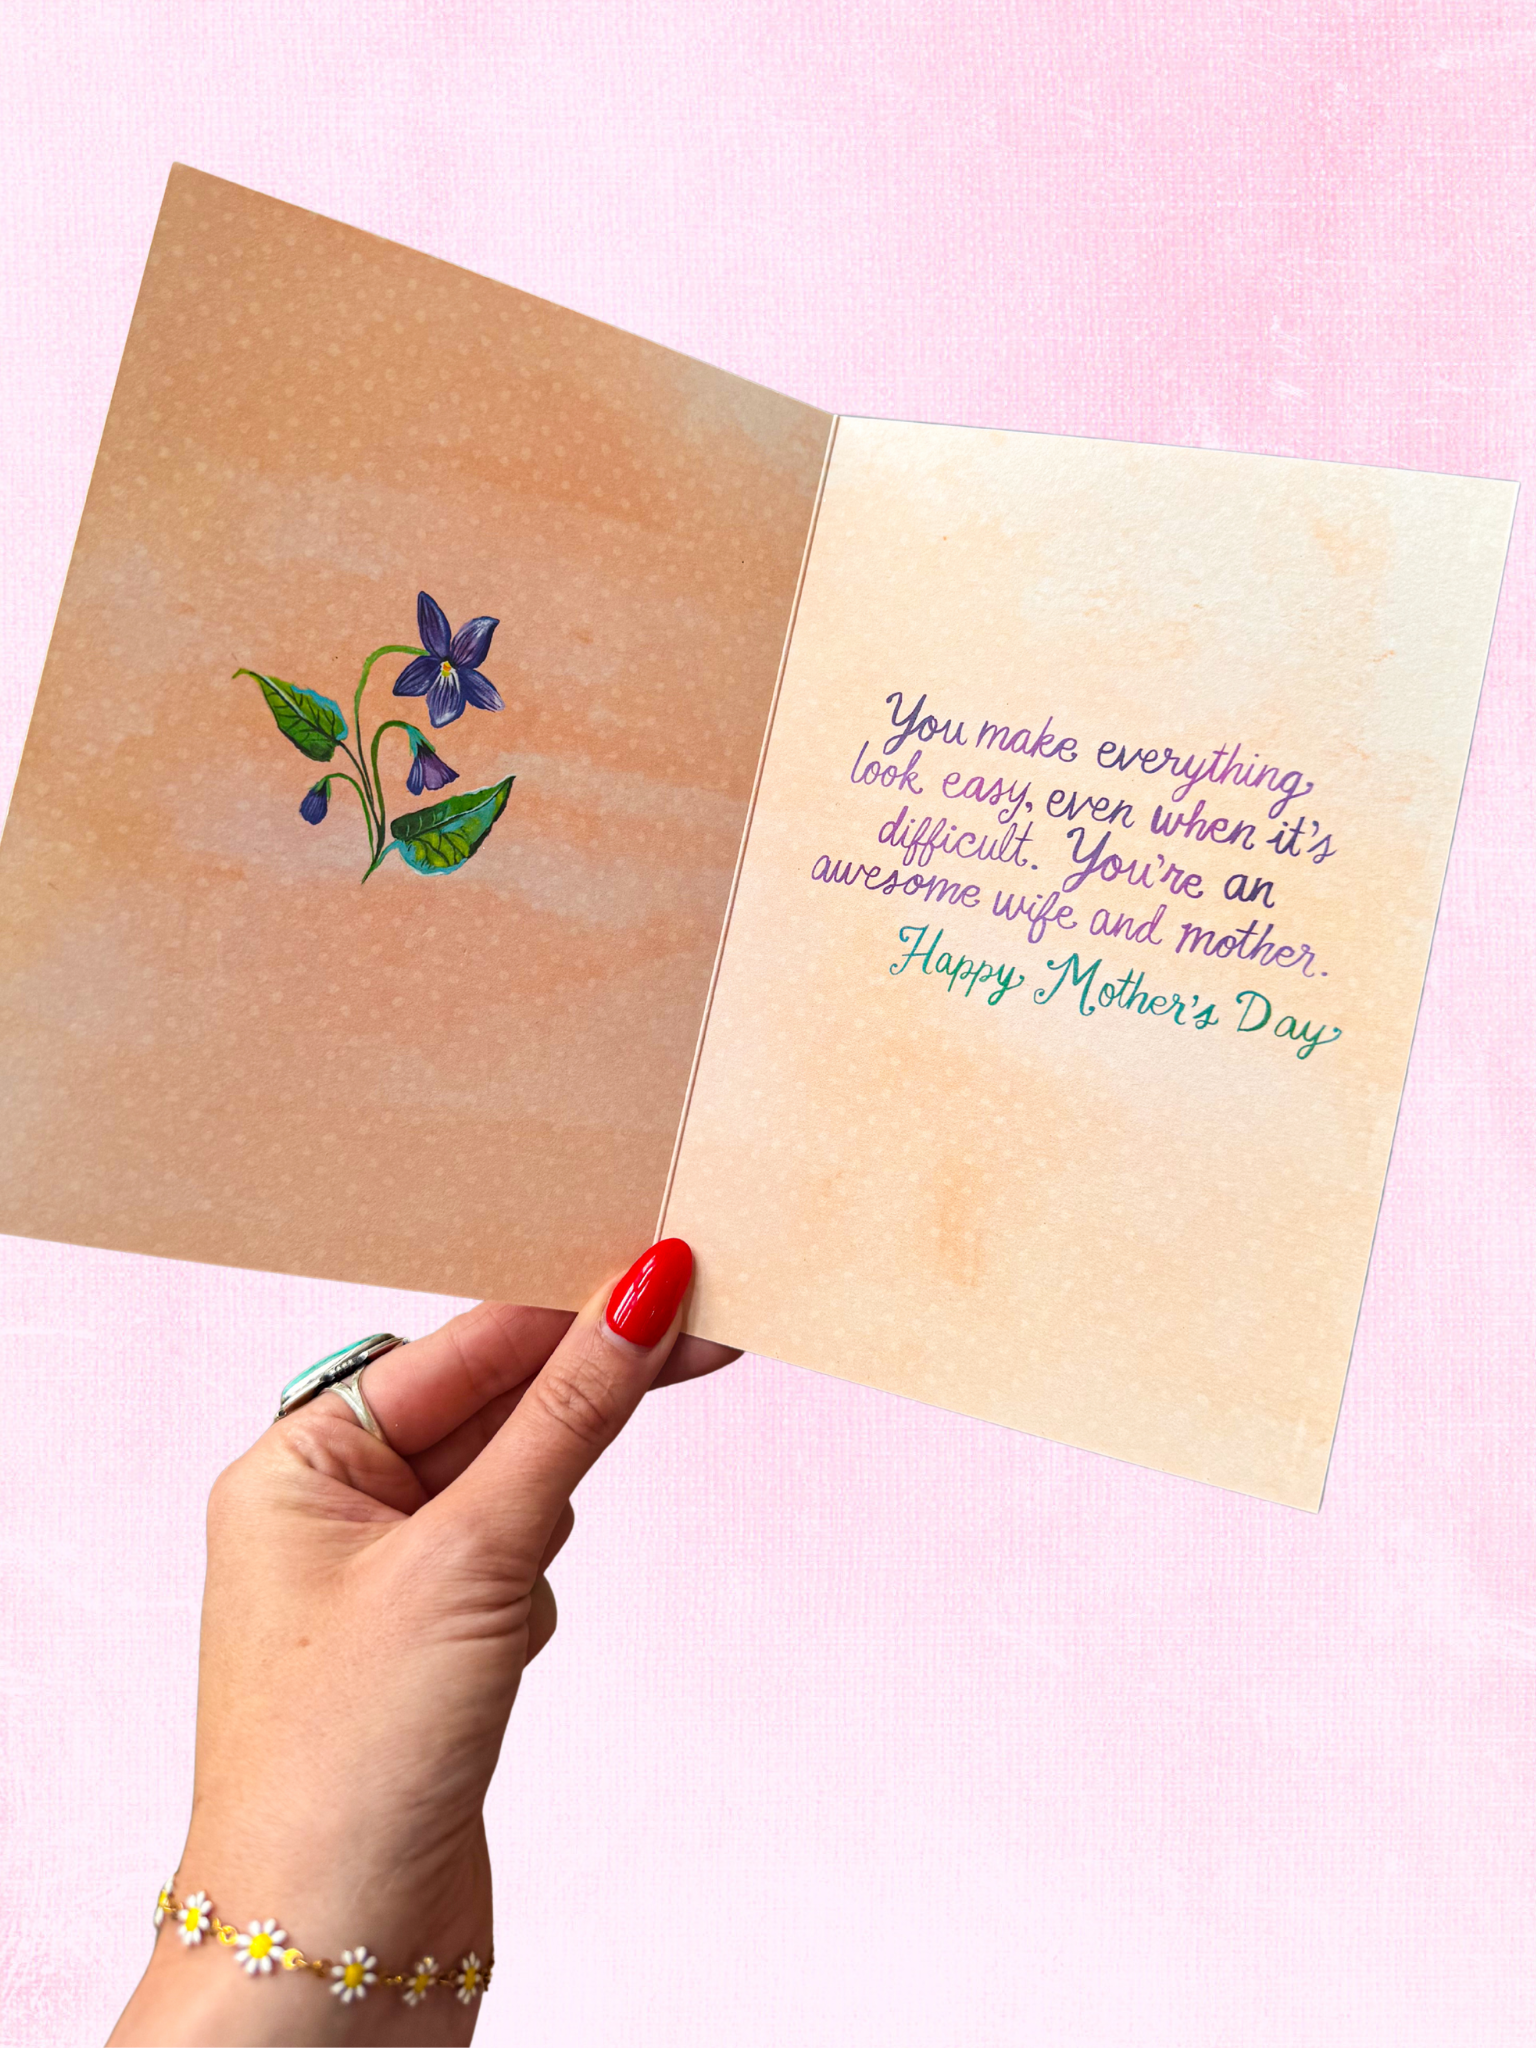 You make everything
look easy, even when it's
difficult. You're an
awesome wife and mother.
Happy Mother's Day